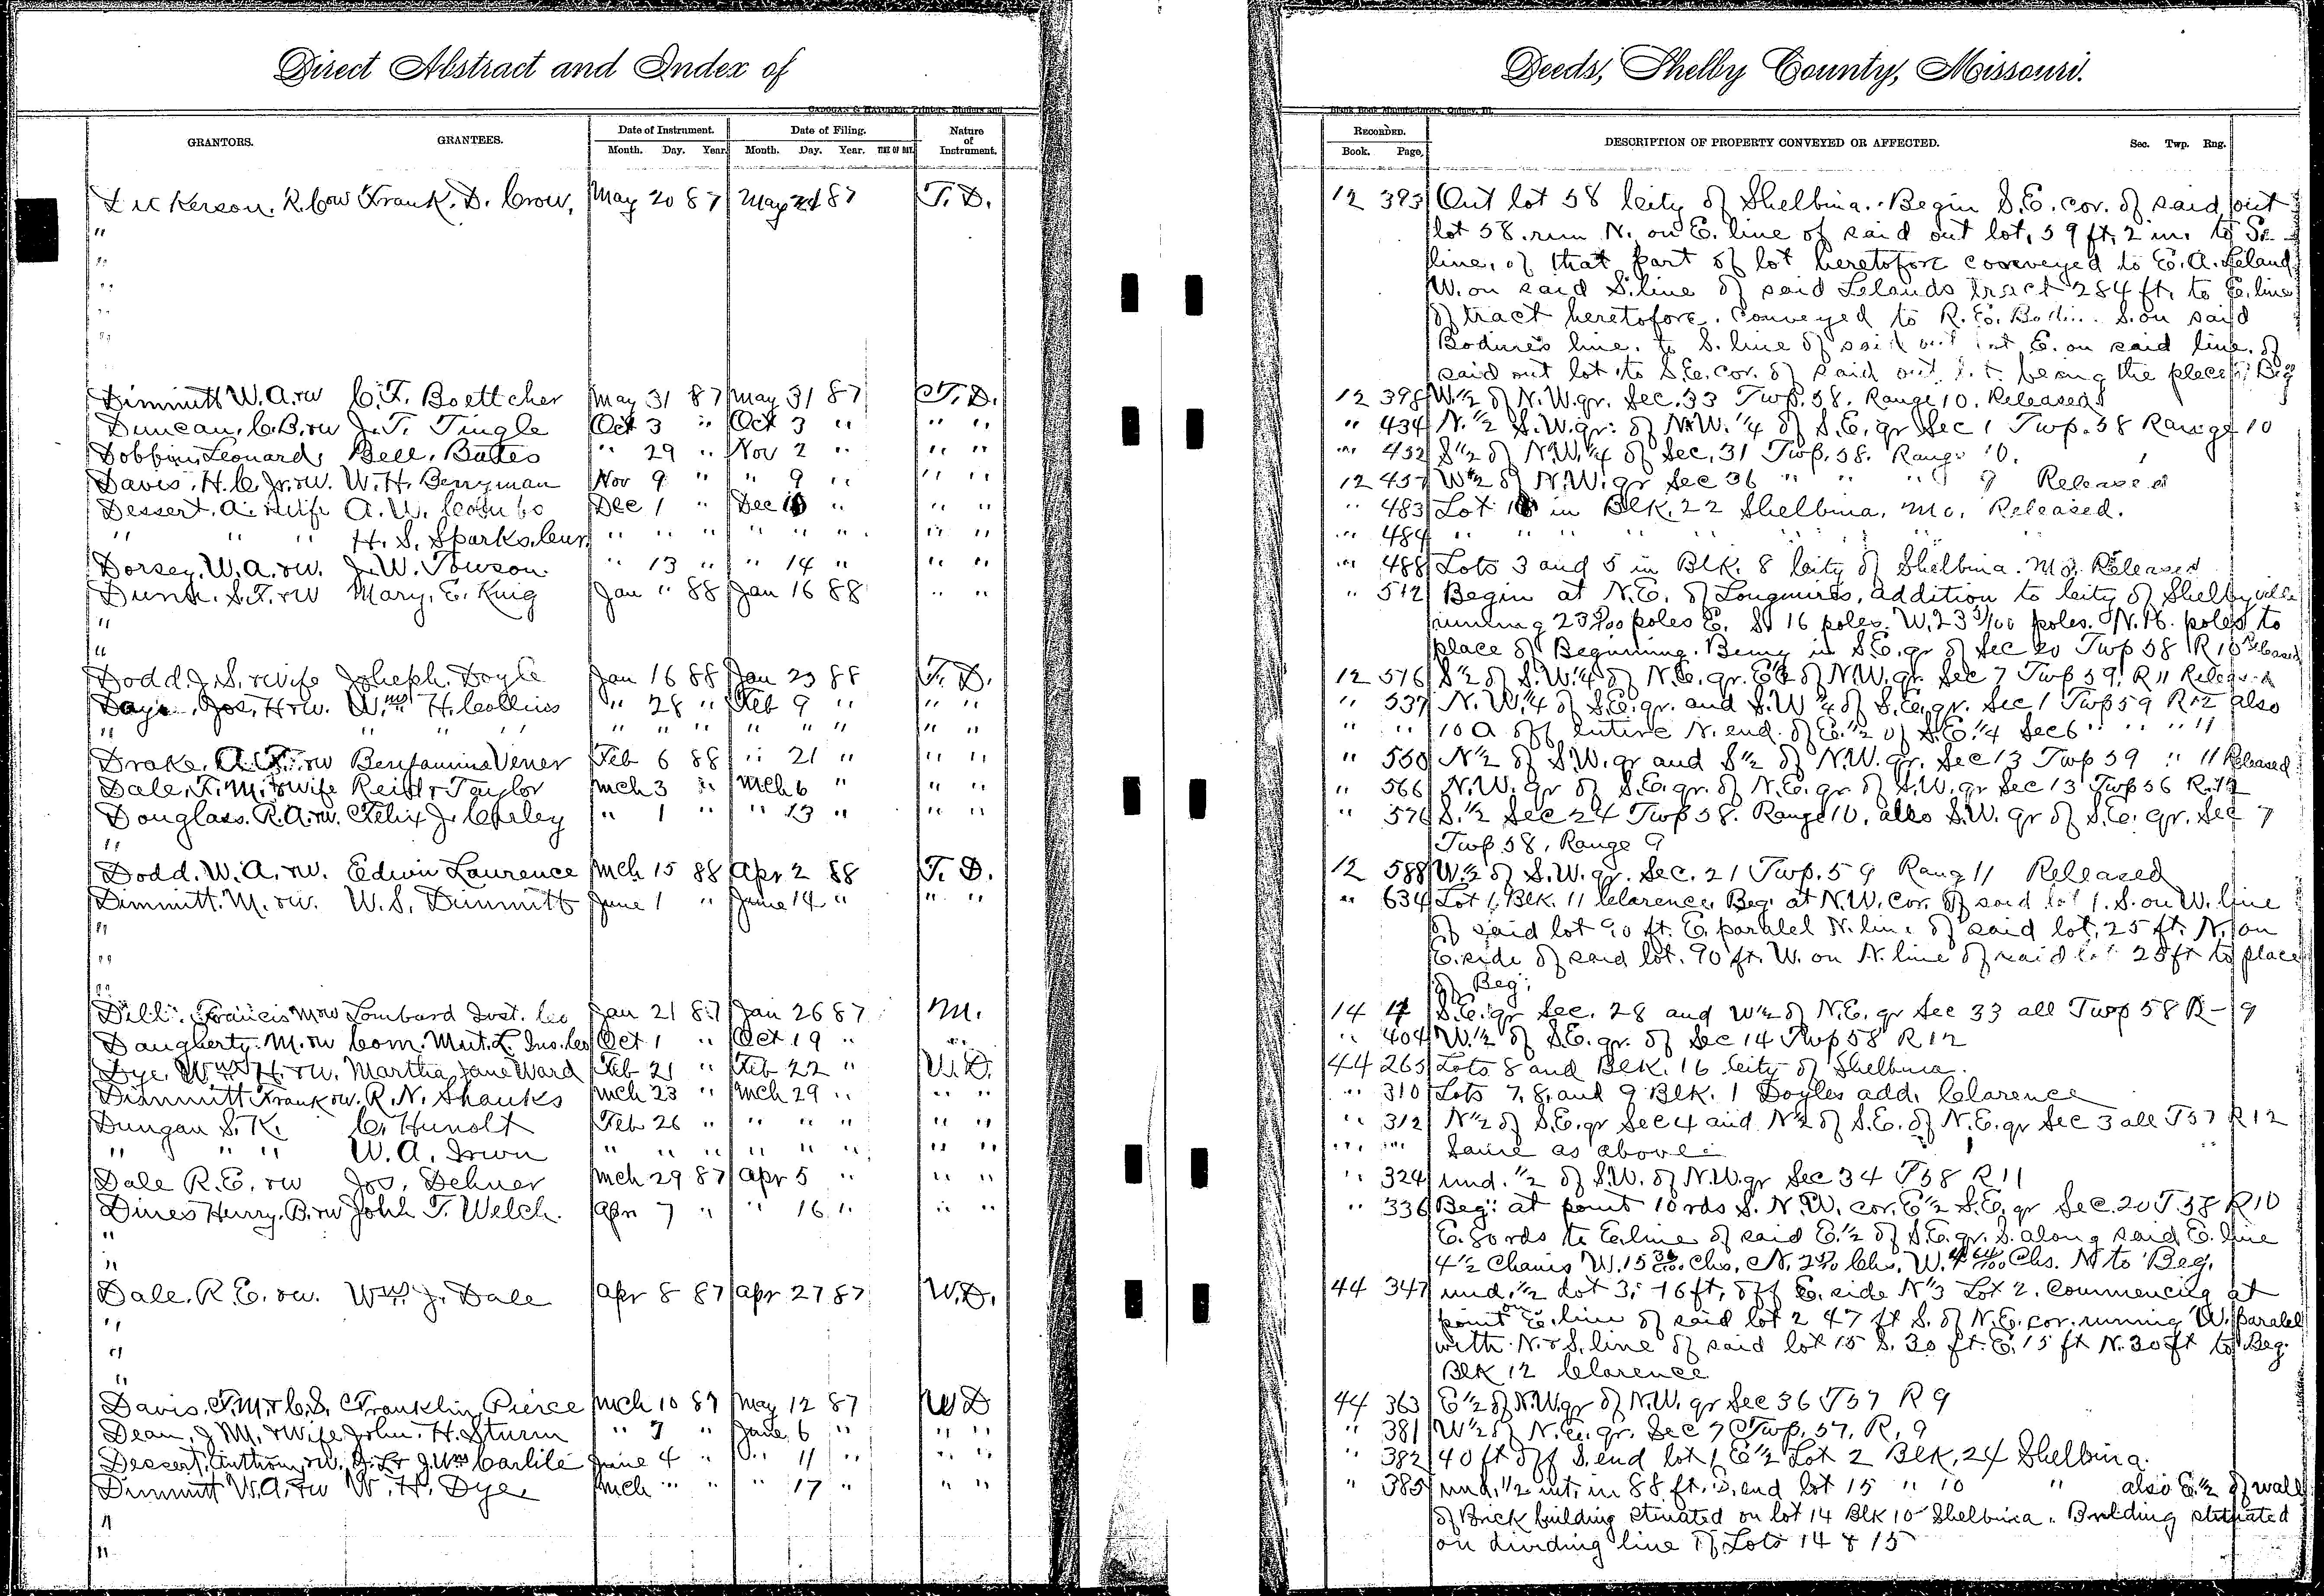 Direct Abstract and Index of Deeds, Shelby County, Missouri.
CADOGAN & HATCHER, Printers, Binders and Blank Book Manufacturers, Quincy, Ill.
GRANTORS. GRANTEES. Date of Instrument. Date of Filing. Nature of Instrument. RECORDED. DESCRIPTION OF PROPERTY CONVEYED OR AFFECTED. Sec. Twp. Rng.
Month. Day. Year. Month. Day. Year. TIME OF DAY. Book. Page.
Dickerson. R. Frank. D. Crow, May 20 87 May 87 T. D. 12 393 Out lot 58 City of Shelbina. Begin S.E. cor. of said out
" lot 58. run N. on E. line of said out lot, 59 ft. 2 in. to
" line, of that part of lot heretofore conveyed to E. A. Leland
" W. on said S. line of said Lelands tract 284 ft. to E. line
" of tract heretofore. conveyed to R. E. S. on said
" line. to S. line of said out lot E. on said line. of
said out lot to S.E. cor. of said out lot being the place of Beg
Dimmitt W. A. rw C. F. Boettcher May 31 87 May 31 87 T. D. 12 398 W. 1/2 of N.W. qr. Sec. 33 Twp. 58. Range 10. Released
Duncan, C. B. rw J. T. Tingle Oct 3 " Oct 3 " " " " 434 N. 1/2 S.W. qr. of N.W. 1/4 of S.E. qr Sec 1 Twp. 58 Range 10
Leonard, Bell. Bates " 29 " Nov 2 " " " " 452 S 1/2 of N.W. 1/4 of Sec. 31 Twp. 58. Range 10.
Davis. H. C. Jr. rw. W. H. Berryman Nov 9 " " 9 " " " 12 457 W 1/2 of N.W. qr Sec 36 " " " 9 Released
Dessert, A. & wife A. W. Dec 1 " Dec " " " " 483 Lot in Blk. 22 Shelbina, Mo. Released.
" " " H. S. Sparks, Cur. " " " " " " " " " 484 " " " " " "
Dorsey. W. A. rw. J. W. Towson. " 13 " " 14 " " " " 488 Lots 3 and 5 in Blk. 8 City of Shelbina. Mo. Released
Dunn. S. F. rw Mary. E. King Jan " 88 Jan 16 88 " " " 512 Begin at N.E. of Longmires, addition to City of Shelbyville
" running 23 poles E. S. 16 poles. W. 23 poles. N. 16 poles to
" place of Beginning. Being in S.E. qr of Sec 20 Twp 58 R 10 Released
Dodd. J. S. & wife Joheph. Doyle Jan 16 88 Jan 23 88 T. D. 12 516 S 1/2 of S.W. 1/4 of N.E. qr. E 1/2 of N.W. qr. Sec 7 Twp 59. R 11 Released
Jos. H rw. Wm. H. Collins " 28 " Feb 9 " " " " 537 N. W. 1/4 of S.E. qr. and S.W 1/4 of S.E. qr. Sec 1 Twp 59 R 12 also
" " " " " " " " " " " " " " 10 A off entire N. end. of E. 1/2 of S.E. 1/4 Sec 6 " " " " 11
Drake. A. F. rw Benjamine Vener Feb 6 88 " 21 " " " " 550 N 1/2 of S.W. qr and S 1/2 of N.W. qr. Sec 13 Twp 59 " 11 Released
Dale, F. M. & wife Reid & Taylor Mch 3 " Mch 6 " " " " 566 N.W. qr of S.E. qr. of N.E. qr of S.W. qr Sec 13 Twp 56 R. 12
Douglass. R. A. rw. Felix J. Curley " 1 " " 13 " " " " 576 S. 1/2 Sec 24 Twp 58. Range 10, also S.W. qr of S.E. qr. Sec 7
" Twp 58, Range 9
Dodd. W. A. rw. Edwin Laurence Mch 15 88 Apr 2 88 T. D. 12 588 W. 1/2 of S.W. qr. Sec. 21 Twp. 59 Rang 11 Released
Dimmitt. M. rw. W. S. Dimmitt June 1 " June 14 " " " " 634 Lot 1, Blk. 11 Clarence, Beg. at N.W. cor. of said lot 1. S. on W. line
" of said lot 90 ft. E. paralel N. line of said lot, 25 ft. N. on
" E. side of said lot. 90 ft. W. on N. line of said lot 25 ft to place
" of Beg:
Dill. Francis M rw Lombard Invt. Co Jan 21 87 Jan 26 87 M. 14 S.E. qr Sec. 28 and W 1/2 of N.E. qr Sec 33 all Twp 58 R - 9
Daugherty. M. rw Com. Mut. L. Ins. Co Oct 1 " Oct 19 " " " " 404 W. 1/2 of S.E. qr. of Sec 14 Twp 58 R 12
Dye, Wm. H. rw. Martha Jane Ward Feb 21 " Feb 22 " W. D. 44 265 Lots 8 and Blk. 16 City of Shelbina.
Dimmitt Frank rw. R. N. Shanks Mch 23 " Mch 29 " " " " 310 Lots 7, 8, and 9 Blk. 1 Doyles add. Clarence
Dungan S. K. C. Hunolt Feb 26 " " " " " " " 312 N 1/2 of S.E. qr Sec 4 and N 1/2 of S.E. of N.E. qr Sec 3 all T 57 R 12
" " " W. A. Irwin " " " " " " " " " " Same as above
Dale R. E. rw Jos. Dehner Mch 29 87 Apr 5 " " " " 324 und. 1/2 of S.W. of N.W. qr Sec 34 T 58 R 11
Dines Henry. B. rw John T. Welch. Apr 7 " " 16 " " " " 336 Beg: at point 10 rds S. N.W. cor. E 1/2 S.E. qr Sec. 20 T. 58 R 10
" E. 80 rds to E. line of said E. 1/2 of S.E. qr. S. along said E. line
" 4 1/2 Chains W. 15 36/100 Chs. N. Chs. W. 4 64/100 Chs. N to Beg.
Dale. R. E. rw. Wm. J. Dale Apr 8 87 Apr 27 87 W. D. 44 347 und. 1/2 Lot 3; 16 ft. off E. side N 1/3 Lot 2. Commencing at
" point on E. line of said lot 2 47 ft S. of N.E. cor. running W. paralel
" with N. & S. line of said lot 15 S. 30 ft. E. 15 ft N. 30 ft to Beg.
" Blk 12 Clarence
Davis. F. M. & C. S. Franklin Pierce Mch 10 87 May 12 87 W D 44 363 E 1/2 of N.W. qr of N.W. qr Sec 36 T 57 R 9
Dean, J M. & wife John. H. Sturm " 7 " June 6 " " " " 381 W 1/2 of N.E. qr. Sec 7 Twp. 57. R. 9
Dessert, Anthony rw. J. L. & J. Wm Carlile June 4 " " 11 " " " " 382 40 ft off S. end lot 1 E 1/2 Lot 2 Blk. 24 Shelbina.
Dimmitt W. A. rw W. H. Dye Mch " " " 17 " " " " 385 und. 1/2 int. in 88 ft. S. end lot 15 " 10 " also E. 1/2 of wall
" of Brick building situated on lot 14 Blk 10 Shelbina. Building situated
" on dividing line of Lots 14 & 15